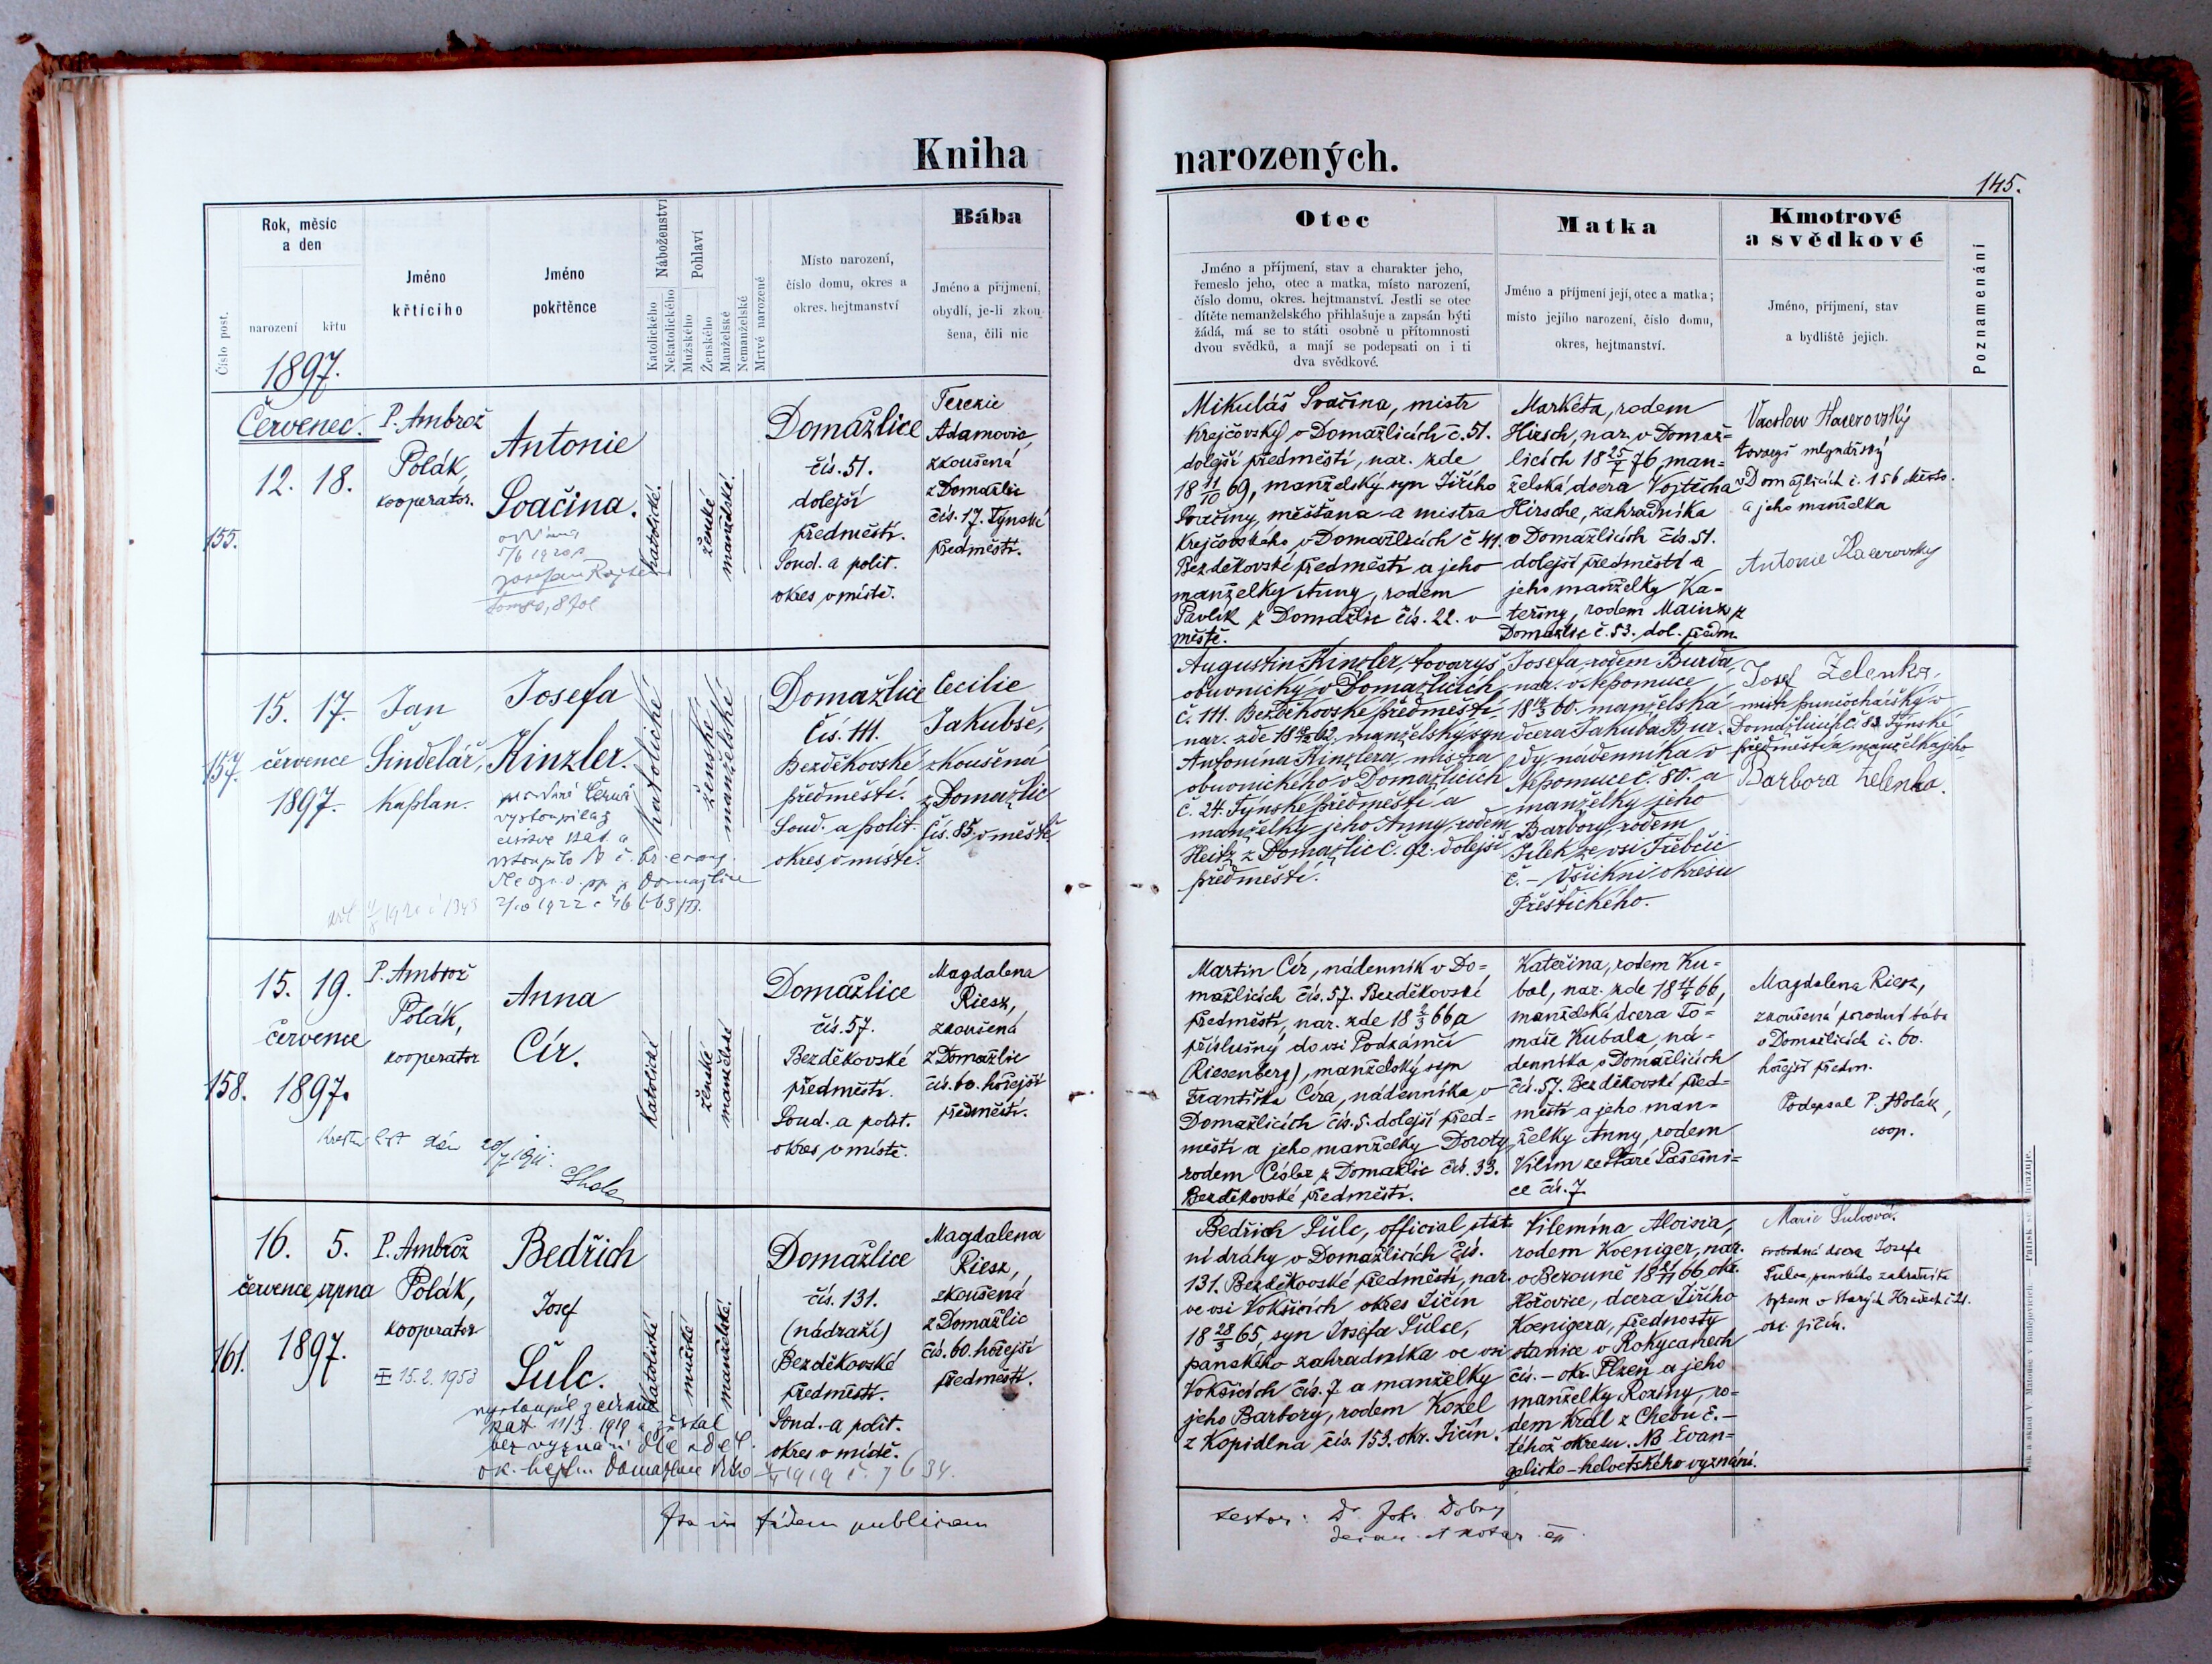 Kniha
narozených.
145.
Číslo post.
Rok, měsíc
a den
narození
křtu
1897.
Jméno
křtícího
Jméno
pokřtěnce
Náboženství
Katolického
Nekatolického
Pohlaví
Mužského
Ženského
Manželské
Nemanželské
Mrtvě narozené
Místo narození,
číslo domu, okres a
okres. hejtmanství
Bába
Jméno a příjmení,
obydlí, je-li zkou-
šena, čili nic
Otec
Jméno a příjmení, stav a charakter jeho,
řemeslo jeho, otec a matka, místo narození,
číslo domu, okres. hejtmanství. Jestli se otec
dítěte nemanželského přihlašuje a zapsán býti
žádá, má se to státi osobně u přítomnosti
dvou svědků, a mají se podepsati on i ti
dva svědkové.
Matka
Jméno a příjmení její, otec a matka;
místo jejího narození, číslo domu,
okres, hejtmanství.
Kmotrové
a svědkové
Jméno, příjmení, stav
a bydliště jejich.
Poznamenání
155.
Červenec.
12. 18.
P. Ambrož
Polák,
kooperator.
Antonie
Svačina.
5/6 1920
Josefem
katolické.
ženské
manželské.
Domažlice
čís. 51.
dolejší
předměstí.
Soud. a polit.
okres v místě.
Terezie
Adamovic,
zkoušená
z Domažlic
čís. 17. Týnské
předměstí.
Mikuláš Svačina, mistr
krejčovský v Domažlicích č. 51.
dolejší předměstí, nar. zde
18 11/10 69, manželský syn Jiřího
Svačiny, měšťana a mistra
krejčovského v Domažlicích č 41.
Bezděkovské předměstí a jeho
manželky Anny, rodem
Pavlík z Domažlic čís. 22. v
městě.
Markéta, rodem
Hirsch, nar. v Domaž=
licích 18 25/7 76, man=
želská dcera Vojtěcha
Hirsche, zahradníka
v Domažlicích čís. 51.
dolejší předměstí a
jeho manželky Ka-
teřiny, rodem Mainz z
Domažlic č. 53. dol. předm.
Václav Kacerovský
tovaryš mlynářský
v Domažlicích č. 156 Město.
a jeho manželka
Antonie Kacerovský
157.
15. 17.
července
1897.
Jan
Šindelář,
kaplan.
Josefa
Kinzler.
provdaná Černá
vystoupila z
církve kat. a
vstoupila do č. br. evang.
Domažlice
2/10 1922
katolické
ženské
manželské
Domažlice
Čís. 111.
Bezděkovské
předměstí.
Soud. a polit.
okres v místě.
Cecilie
Jakubše,
zkoušená
z Domažlic
čís. 85. v městě.
Augustin Kinzler, tovaryš
obuvnický v Domažlicích
č. 111. Bezděkovské předměstí,
nar. zde 18 62. manželský syn
Antonína Kinzlera, mistra
obuvnického v Domažlicích
č. 24. Týnské předměstí a
manželky jeho Anny, rodem
Heitz z Domažlic č. 92. dolejší
předměstí.
Josefa, rodem Burda,
nar. v Nepomuce
18 60. manželská
dcera Jakuba Bur-
dy, nádenníka v
Nepomuce č. 80. a
manželky jeho
Barbory, rodem
Jílek ze vsi Třebčic
č. - Všichni okresu
Přeštického.
Josef Zelenka,
mistr punčochářský v
Domažlicích č. 83. Týnské
předměstí a manželka jeho
Barbora Zelenka.
158.
15. 19.
července
1897.
P. Ambrož
Polák,
kooperator
Anna
Cír.
Křestní list dán 20/7 1911.
Katolické
ženské
manželské
Domažlice
čís. 57.
Bezděkovské
předměstí.
Soud. a polit.
okres v místě.
Magdalena
Riesz,
zkoušená
z Domažlic
čís. 60. hořejší
předměstí.
Martin Cír, nádenník v Do=
mažlicích čís. 57. Bezděkovské
předměstí, nar. zde 18 2/3 66 a
příslušný do vsi Podzámčí
(Riesenberg), manželský syn
Františka Círa, nádenníka v
Domažlicích čís. 5. dolejší před=
městí a jeho manželky Doroty,
rodem Cisler z Domažlic čís. 33.
Bezděkovské předměstí.
Kateřina, rodem Ku=
bal, nar. zde 18 66,
manželská dcera To=
máše Kubala, ná-
denníka v Domažlicích
čís. 57. Bezděkovské před=
městí a jeho man=
želky Anny, rodem
Vilím ze Staré Pasečni=
ce čís. 7.
Magdalena Riesz,
zkoušená porodní bába
v Domažlicích č. 60.
hořejší předm.
Podepsal P. A. Polák,
coop.
161.
16. 5.
července, srpna
1897.
P. Ambrož
Polák,
kooperator
15. 2. 1953
Bedřich
Josef
Šulc.
vystoupil z církve
kat. 11/3. 1919 a zůstal
bez vyznání dle sděl.
ok. hejtm. Domažlice 1919 č. 7634.
Katolické
mužské
manželské.
Domažlice
čís. 131.
(nádraží)
Bezděkovské
předměstí.
Soud. a polit.
okres v místě.
Magdalena
Riesz,
zkoušená
z Domažlic
čís. 60. hořejší
předměstí.
Bedřich Šulc, official stát-
ní dráhy v Domažlicích čís.
131. Bezděkovské předměstí, nar.
ve vsi Vokšicích okres Jičín
18 28/3 65, syn Josefa Šulce,
panského zahradníka ve vsi
Vokšicích čís. 7 a manželky
jeho Barbory, rodem Kozel
z Kopidlna čís. 153. okr. Jičín.
Vilemína Aloisia,
rodem Koeniger, nar.
v Berouně 18 66 okr.
Hořovice, dcera Jiřího
Koenigera, přednosty
stanice v Rokycanech
čís. - okr. Plzeň a jeho
manželky Roziny, ro-
dem Král z Chebu č. -
téhož okresu. NB Evan=
gelicko-helvetského vyznání.
Marie Šulcová.
svobodná dcera Josefa
Šulce, panského zahradníka
bytem v Starých Hradech
okr. Jičín.
fidem publicam
testor: Dr. Joh. Dobrý